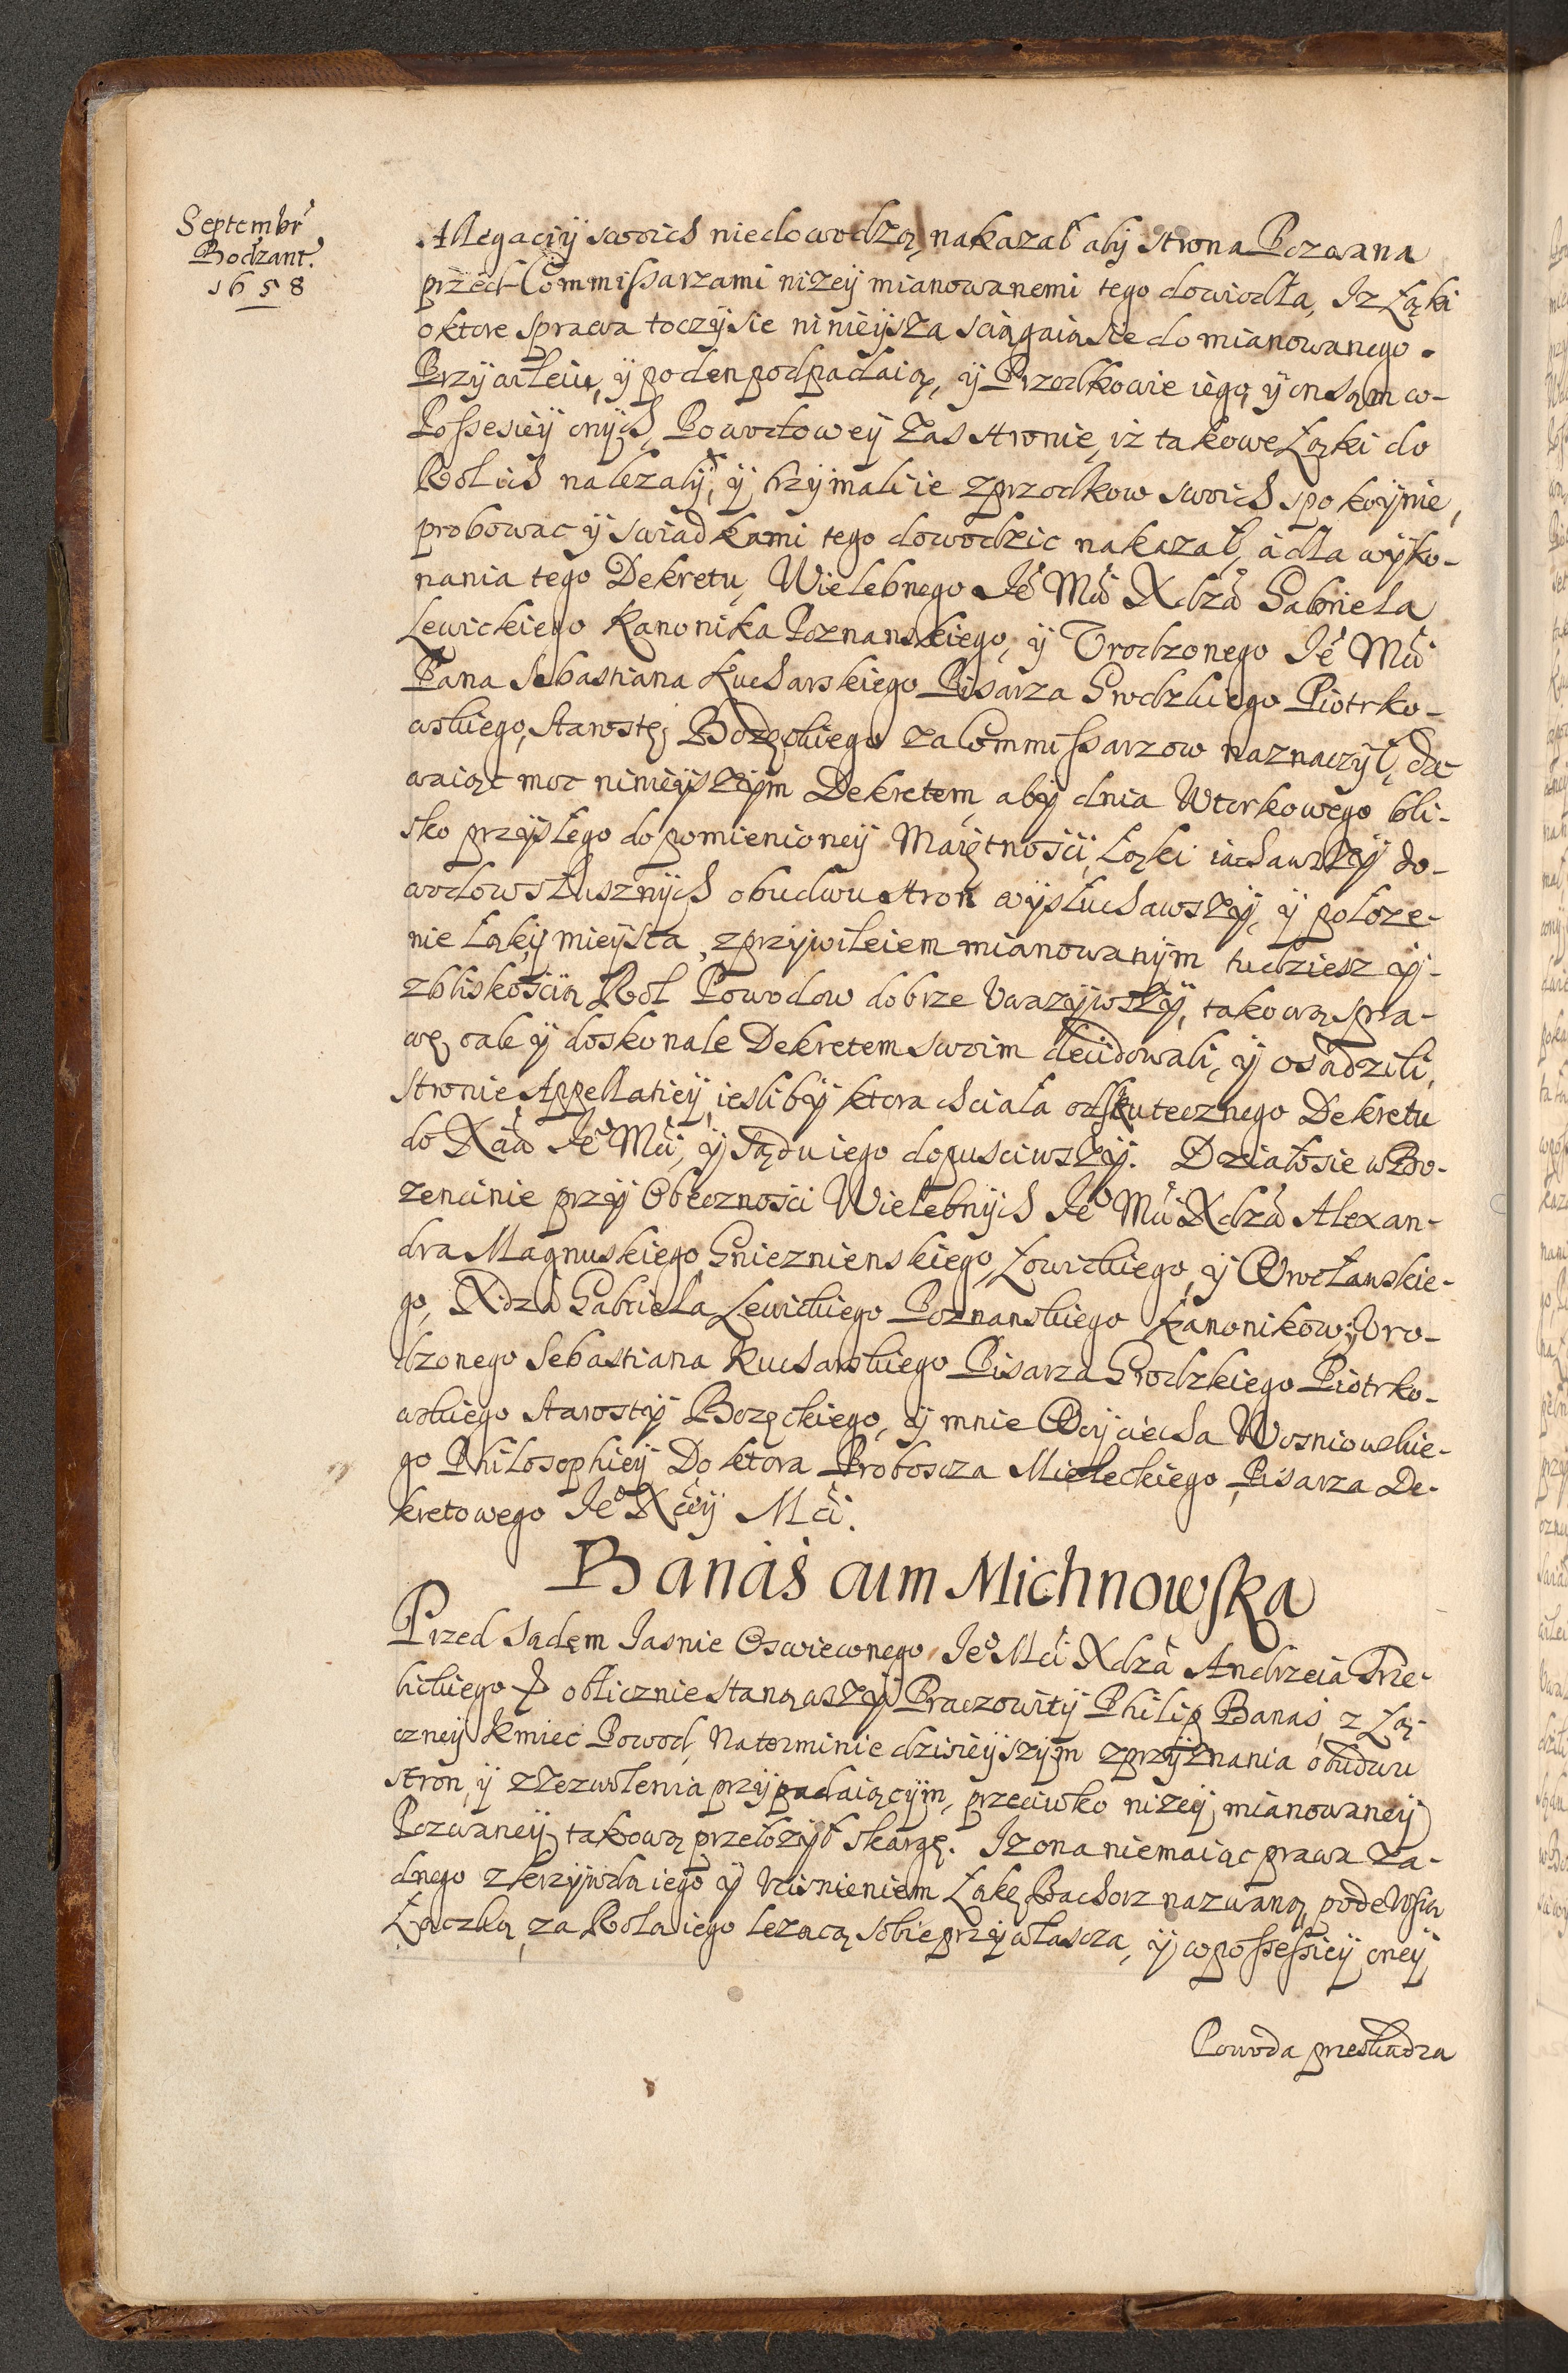 Septembr
Bodzant.
1658
Allegaciÿ swoich niedowodzą, nakazał abÿ strona Pozwana
przed Commissarzami nizeÿ mianowanemi tego dowiodła, Iz Łąki
oktore sprawa toczÿ sie ninieÿsza sciągaią sie do mianowanego
Przywileiu, ÿ poden podpadaią, ÿ Przodkowie iego, ÿ on sąm w-
Possesieÿ onÿch, Powodoweÿ Zas stronie, iż takowe Łąki do
Rol ich nalezałÿ, ÿ trzÿmali ie zprzodkow swoich spokoÿnie,
probowac ÿ swiadkami tego dowodzic nakazał, á dla wÿko-
nania tego Dekretu, Wielebnego Jeº Mći Xdza Gabriela
Lewickiego Kanonika Poznanskiego, ÿ Urodzonego Jeº Mći
Pana Sebastiana Kucharskiego Pisarza Grodzkiego Piotrko-
wskiego, Starostę Bozęckiego za Commissarzow naznaczÿł, da-
waiąc moc ninieÿszÿm Dekretem, abÿ dnia Wtorkowego bli-
sko przÿszłego do pomienioneÿ Maiętnosci, Łąki iachawszÿ do-
wodow słusznÿch obudwu stron wÿsłuchawszÿ, ÿ połoze-
nie Łąkÿ mieÿsca, zprzÿwileiem mianowanÿm tudziesz ÿ-
zbliskoscią Rol Powodow dobrze Uwazÿwszÿ, takową spra-
wę cale ÿ doskonale Dekretem swoim decidowali, ÿ osądzili,
Stronie Appellatieÿ, iesli bÿ ktora chciała od skutecznego Dekretu
do Xcia Jeº Mći, ÿ Sądu iego dopusciwszÿ. Działo sie w Bo-
zencinie przÿ Obecznosci Wielebnÿch Jeº Mći Xdza Alexan-
dra Magnuskiego Gnieznienskiego, Łowickiego, ÿ Wrocłanskie-
go, Xdza Gabriela Lewickiego Poznanskiego Kanonikow, ÿ Uro-
dzonego Sebastiana Kucharskiego Pisarza Grodzkiego Piotrko-
wskiego Starostÿ Bozęckiego, ÿ mnie Woÿciecha Wosniowskie-
go Philosophieÿ Doktora Proboscza Mieleckiego, Pisarza De-
kretowego Jeº Xcÿ Mći.
Banaś cum Michnowska
Przed Sądem Iasnie Oswieconego Jeº Mći Xdza Andrzeia Trze-
bickiego &c oblicznie stanąwszÿ Praczowitÿ Philip Banaś, z Łą-
czneÿ Kmiec Powod, Na terminie dzisieÿszÿm zprzÿznania obudwu
stron, ÿ zZezwolenia przÿpadaiącÿm, przeciwko nizeÿ mianowaneÿ
Pozwaneÿ, takową przełozÿł skargę. Iz ona niemaiąc prawa za-
dnego zkrzÿwda iego ÿ Uciśnieniem Łąkę Bachorz nazwaną pode Wsią
Łączką, za Rola iego lezącą sobie przÿwłascza, ÿ w possessieÿ oneÿ
Powoda przeskadza